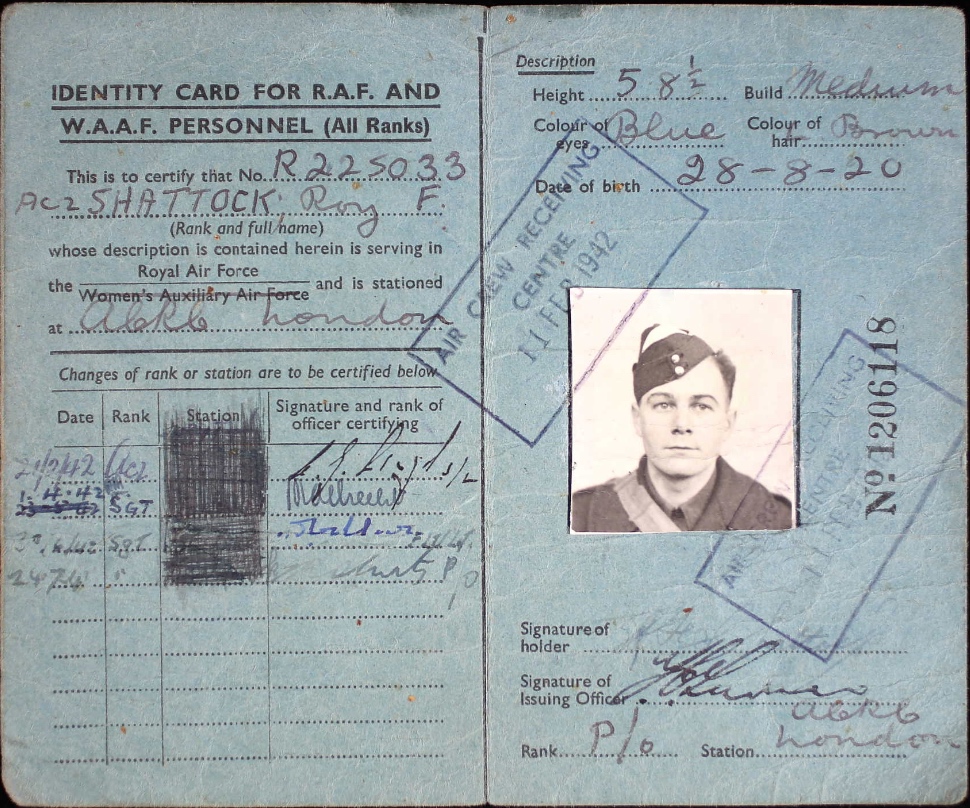 IDENTITY CARD FOR R.A.F. AND
W.A.A.F. PERSONNEL (All Ranks)
This is to certify that No. R225033
AC2 SHATTOCK Roy F.
(Rank and full name)
whose description is contained herein is serving in
Royal Air Force
the Women's Auxiliary Air Force and is stationed
at London
Changes of rank or station are to be certified below
Date Rank Station Signature and rank of officer certifying
AC2
1.4.42 SGT
SGT
Description
Height 5 8½ Build Medium
Colour of eyes Blue Colour of hair Brown
Date of birth 28-8-20
AIR CREW RECEIVING
CENTRE
11 FEB 1942
No 1206118
Signature of holder
Signature of Issuing Officer
Rank P/O Station London